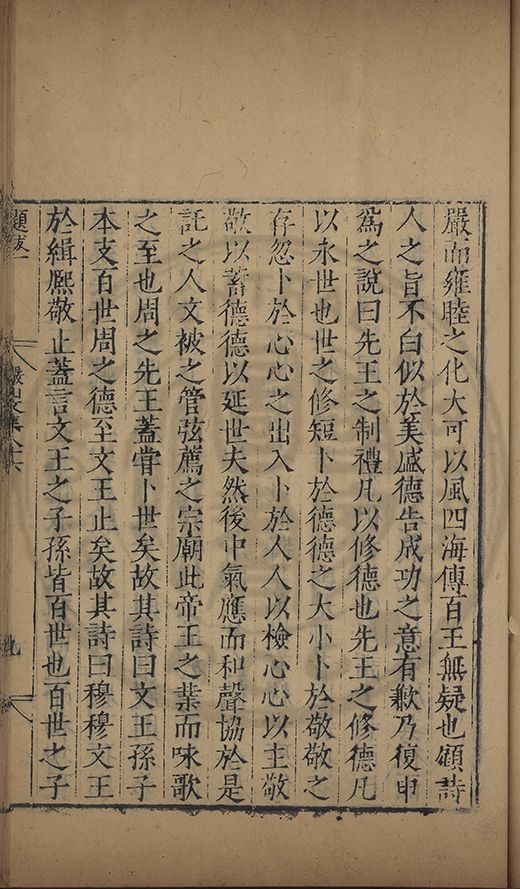 嚴而雍睦之化大可以風四海傳百王無疑也頌詩
人之旨不白似於美盛德告成功之意有歉乃復申
為之說曰先王之制禮凡以修德也先王之修德凡
以永世也世之修短卜於德德之大小卜於敬敬之
存忽卜於心心之出入卜於人人以檢心心以主敬
敬以蓄德德以延世夫然後中氣應而和聲協於是
託之人文被之管弦薦之宗廟此帝王之業而咏歌
之至也周之先王蓋嘗卜世矣故其詩曰文王孫子
本支百世周之德至文王止矣故其詩曰穆穆文王
於緝熙敬止蓋言文王之子孫皆百世也百世之子
題跋一
集
九